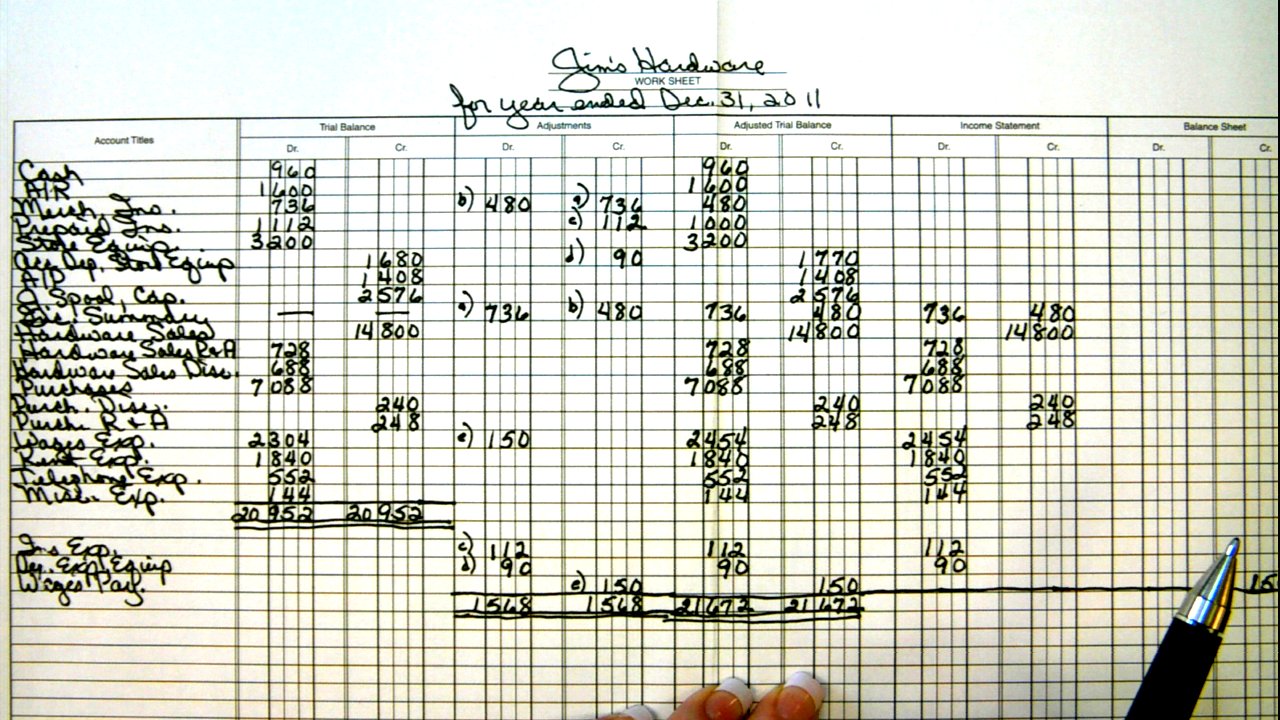 Jim's Hardware
WORK SHEET
for year ended Dec. 31, 2011
Account Titles Trial Balance Adjustments Adjusted Trial Balance Income Statement Balance Sheet
Dr. Cr. Dr. Cr. Dr. Cr. Dr. Cr. Dr. Cr.
Cash 960 960
A/R 1600 1600
Merch. Ins. 736 b) 480 a) 736 480
Prepaid Ins. 1112 c) 112 1000
Store Equip. 3200 3200
Acc. Dep. Store Equip 1680 d) 90 1770
A/P 1408 1408
O. Spool, Cap. 2576 2576
Inc. Summary — — a) 736 b) 480 736 480 736 480
Hardware Sales 14800 14800 14800
Hardware Sales R+A 728 728 728
Hardware Sales Disc. 688 688 688
Purchases 7088 7088 7088
Purch. Disc. 240 240 240
Purch. R + A 248 248 248
Wages Exp. 2304 e) 150 2454 2454
Rent Exp. 1840 1840 1840
Telephone Exp. 552 552 552
Misc. Exp. 144 144 144
20952 20952
Ins Exp. c) 112 112 112
Dep. Exp. Equip d) 90 90 90
Wages Pay. e) 150 150 15
1568 1568 21672 21672